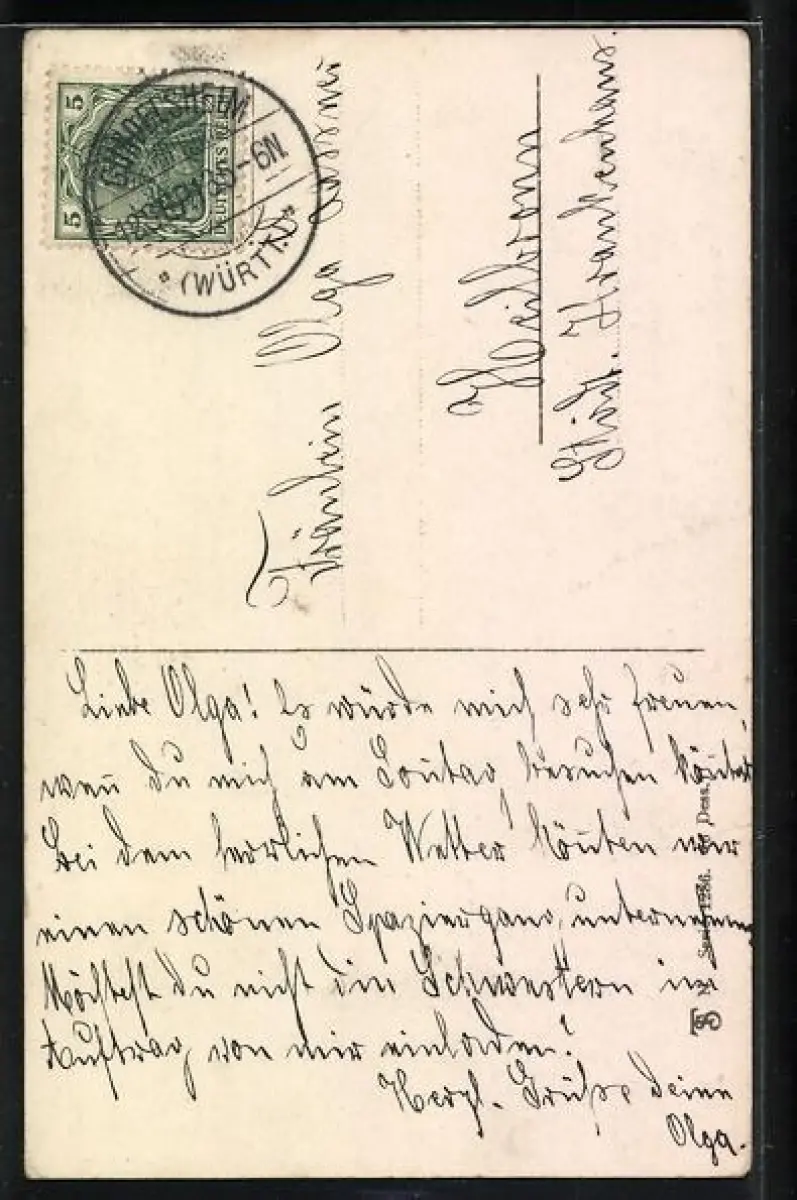 5
5
DEUTSCHES REICH
GUNDELSHEIM
5-6N
* (WÜRTT.) *
Fräulein Olga
Heilbronn
Städt. Krankenhaus.
Liebe Olga! Es würde mich sehr freuen,
wen̄ du mich am Son̄tag besuchen kön̄test
Bei dem herrlichen Wetter kön̄ten wir
einen schönen Spaziergang unternehmen
Möchtest du nicht die Schwestern im
Auftrag von mir einladen!
Herzl. Grüße deine
Olga.
Serie 1286. Dess.